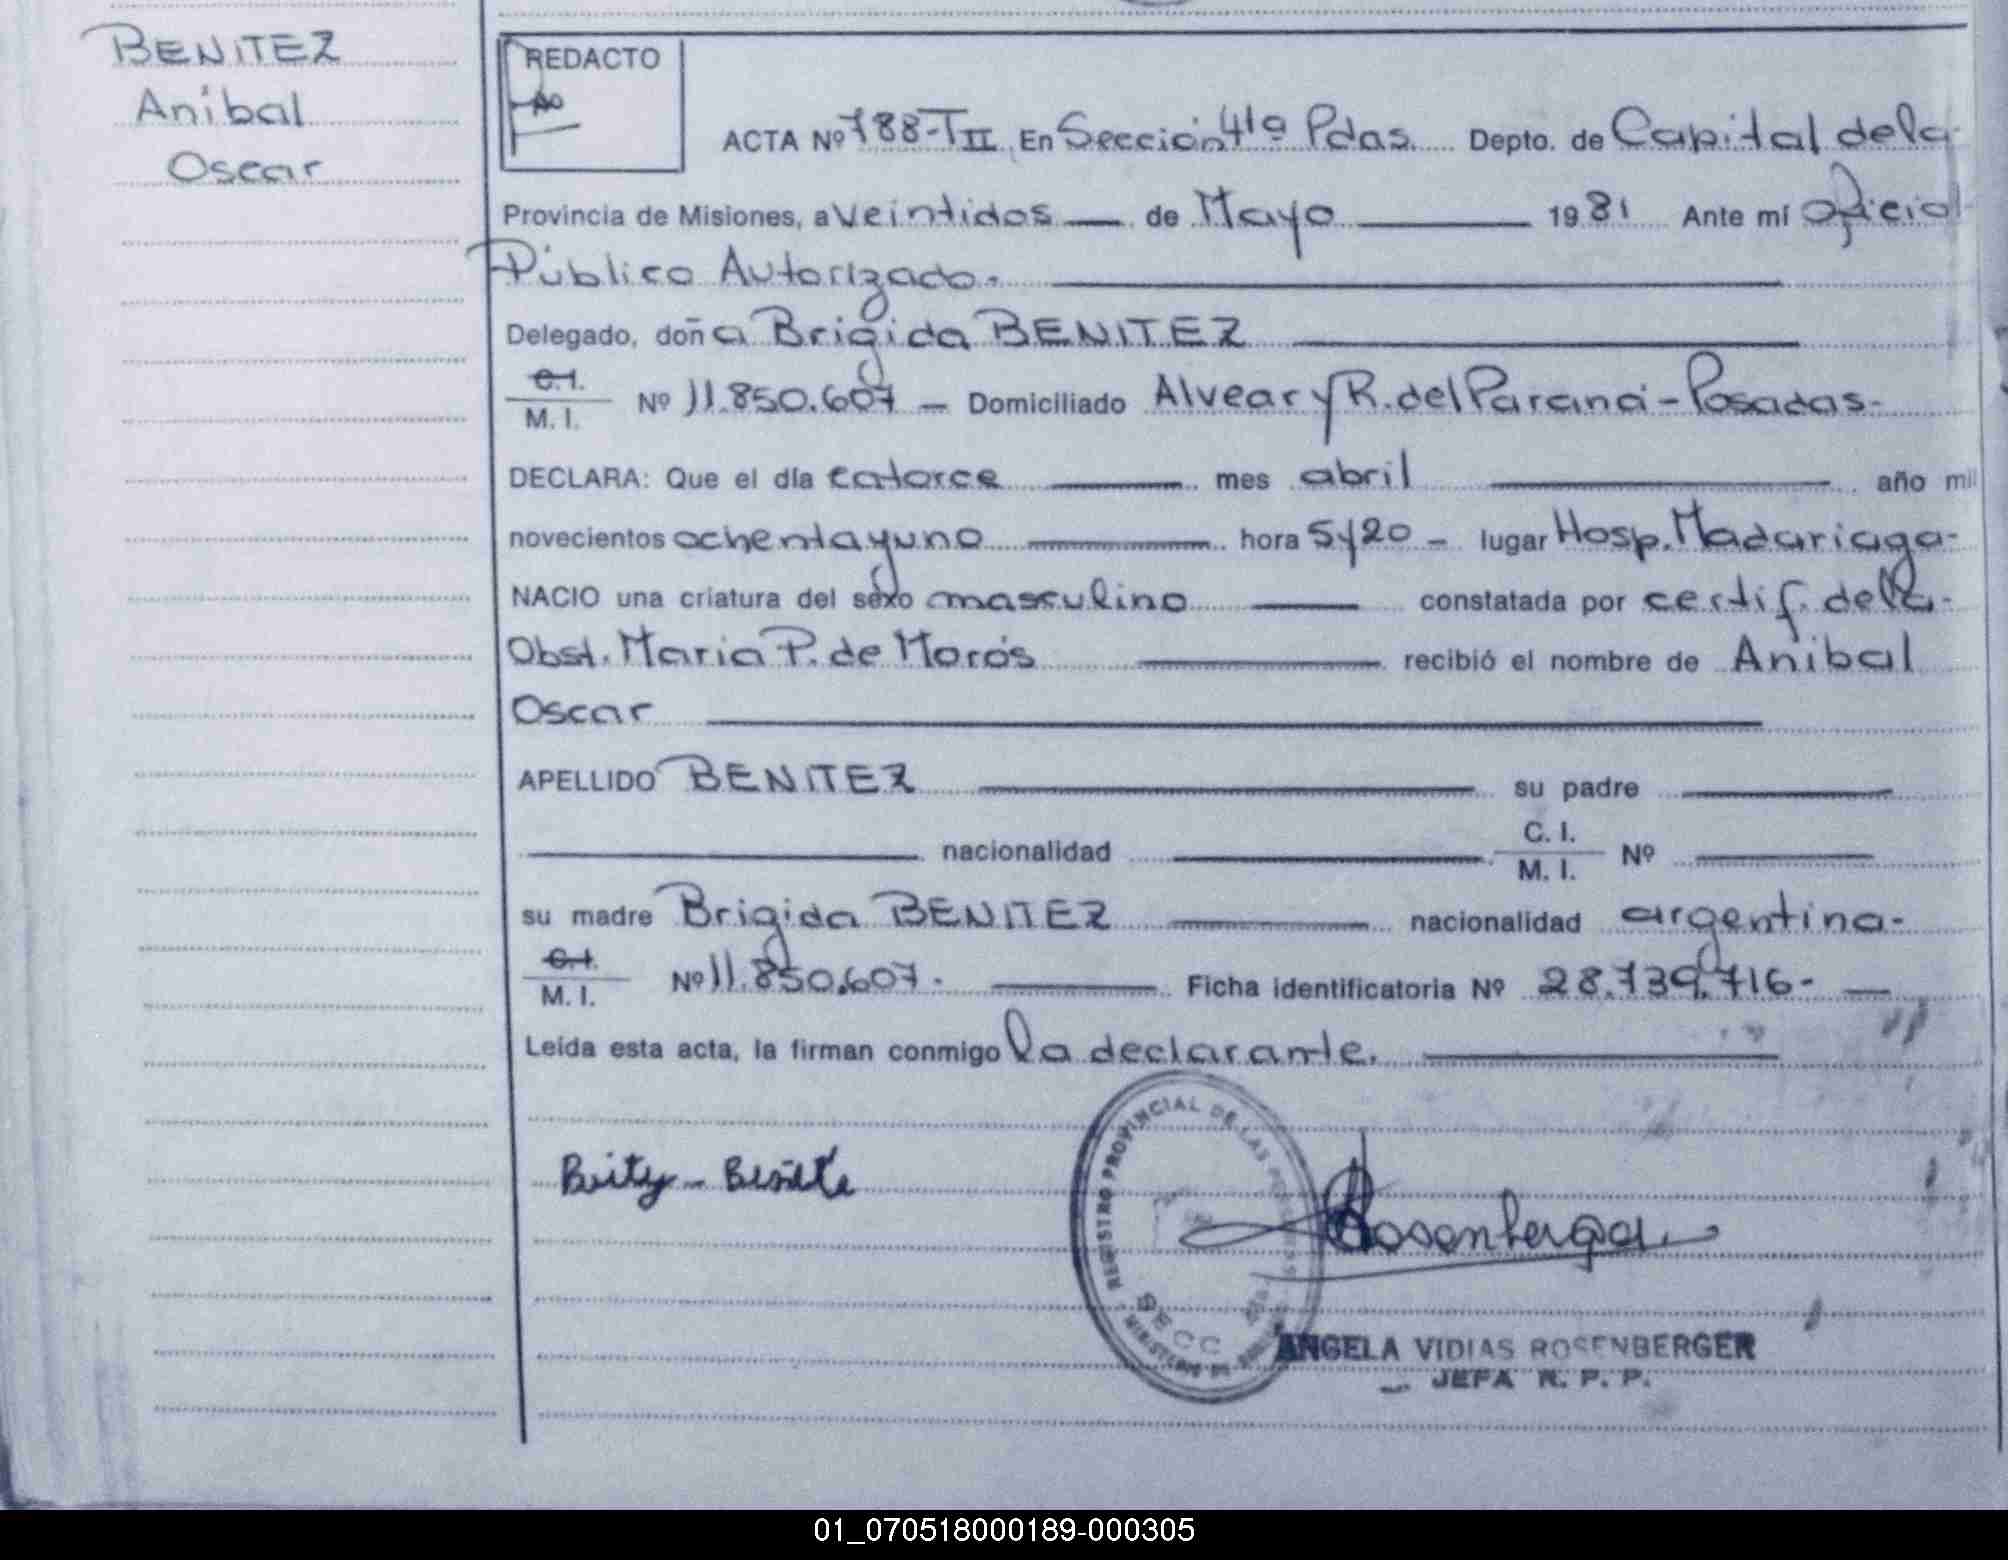 BENITEZ
Anibal
Oscar
REDACTO
ACTA Nº 788-TII En Sección 41ª Pdas. Depto. de Capital de la
Provincia de Misiones, a veintidos de Mayo 1981 Ante mí oficial
Público Autorizado.
Delegado, doña Brigida BENITEZ
C.I.
M. I. Nº 11.850.607 — Domiciliado Alvear y R. del Paraná - Posadas.
DECLARA: Que el día catorce mes abril año mil
novecientos ochenta y uno hora 5y20 — lugar Hosp. Madariaga-
NACIO una criatura del sexo masculino constatada por certif. de la
Obst. Maria P. de Morós recibió el nombre de Anibal
Oscar
APELLIDO BENITEZ su padre
nacionalidad C. I.
M. I. Nº
su madre Brigida BENITEZ nacionalidad argentina-
C.I.
M. I. Nº 11.850.607. Ficha identificatoria Nº 28.739.716-
Leída esta acta, la firman conmigo la declarante.
REGISTRO PROVINCIAL DE LAS
SECC
ANGELA VIDIAS ROSENBERGER
JEFA R. P. P.
01_070518000189-000305